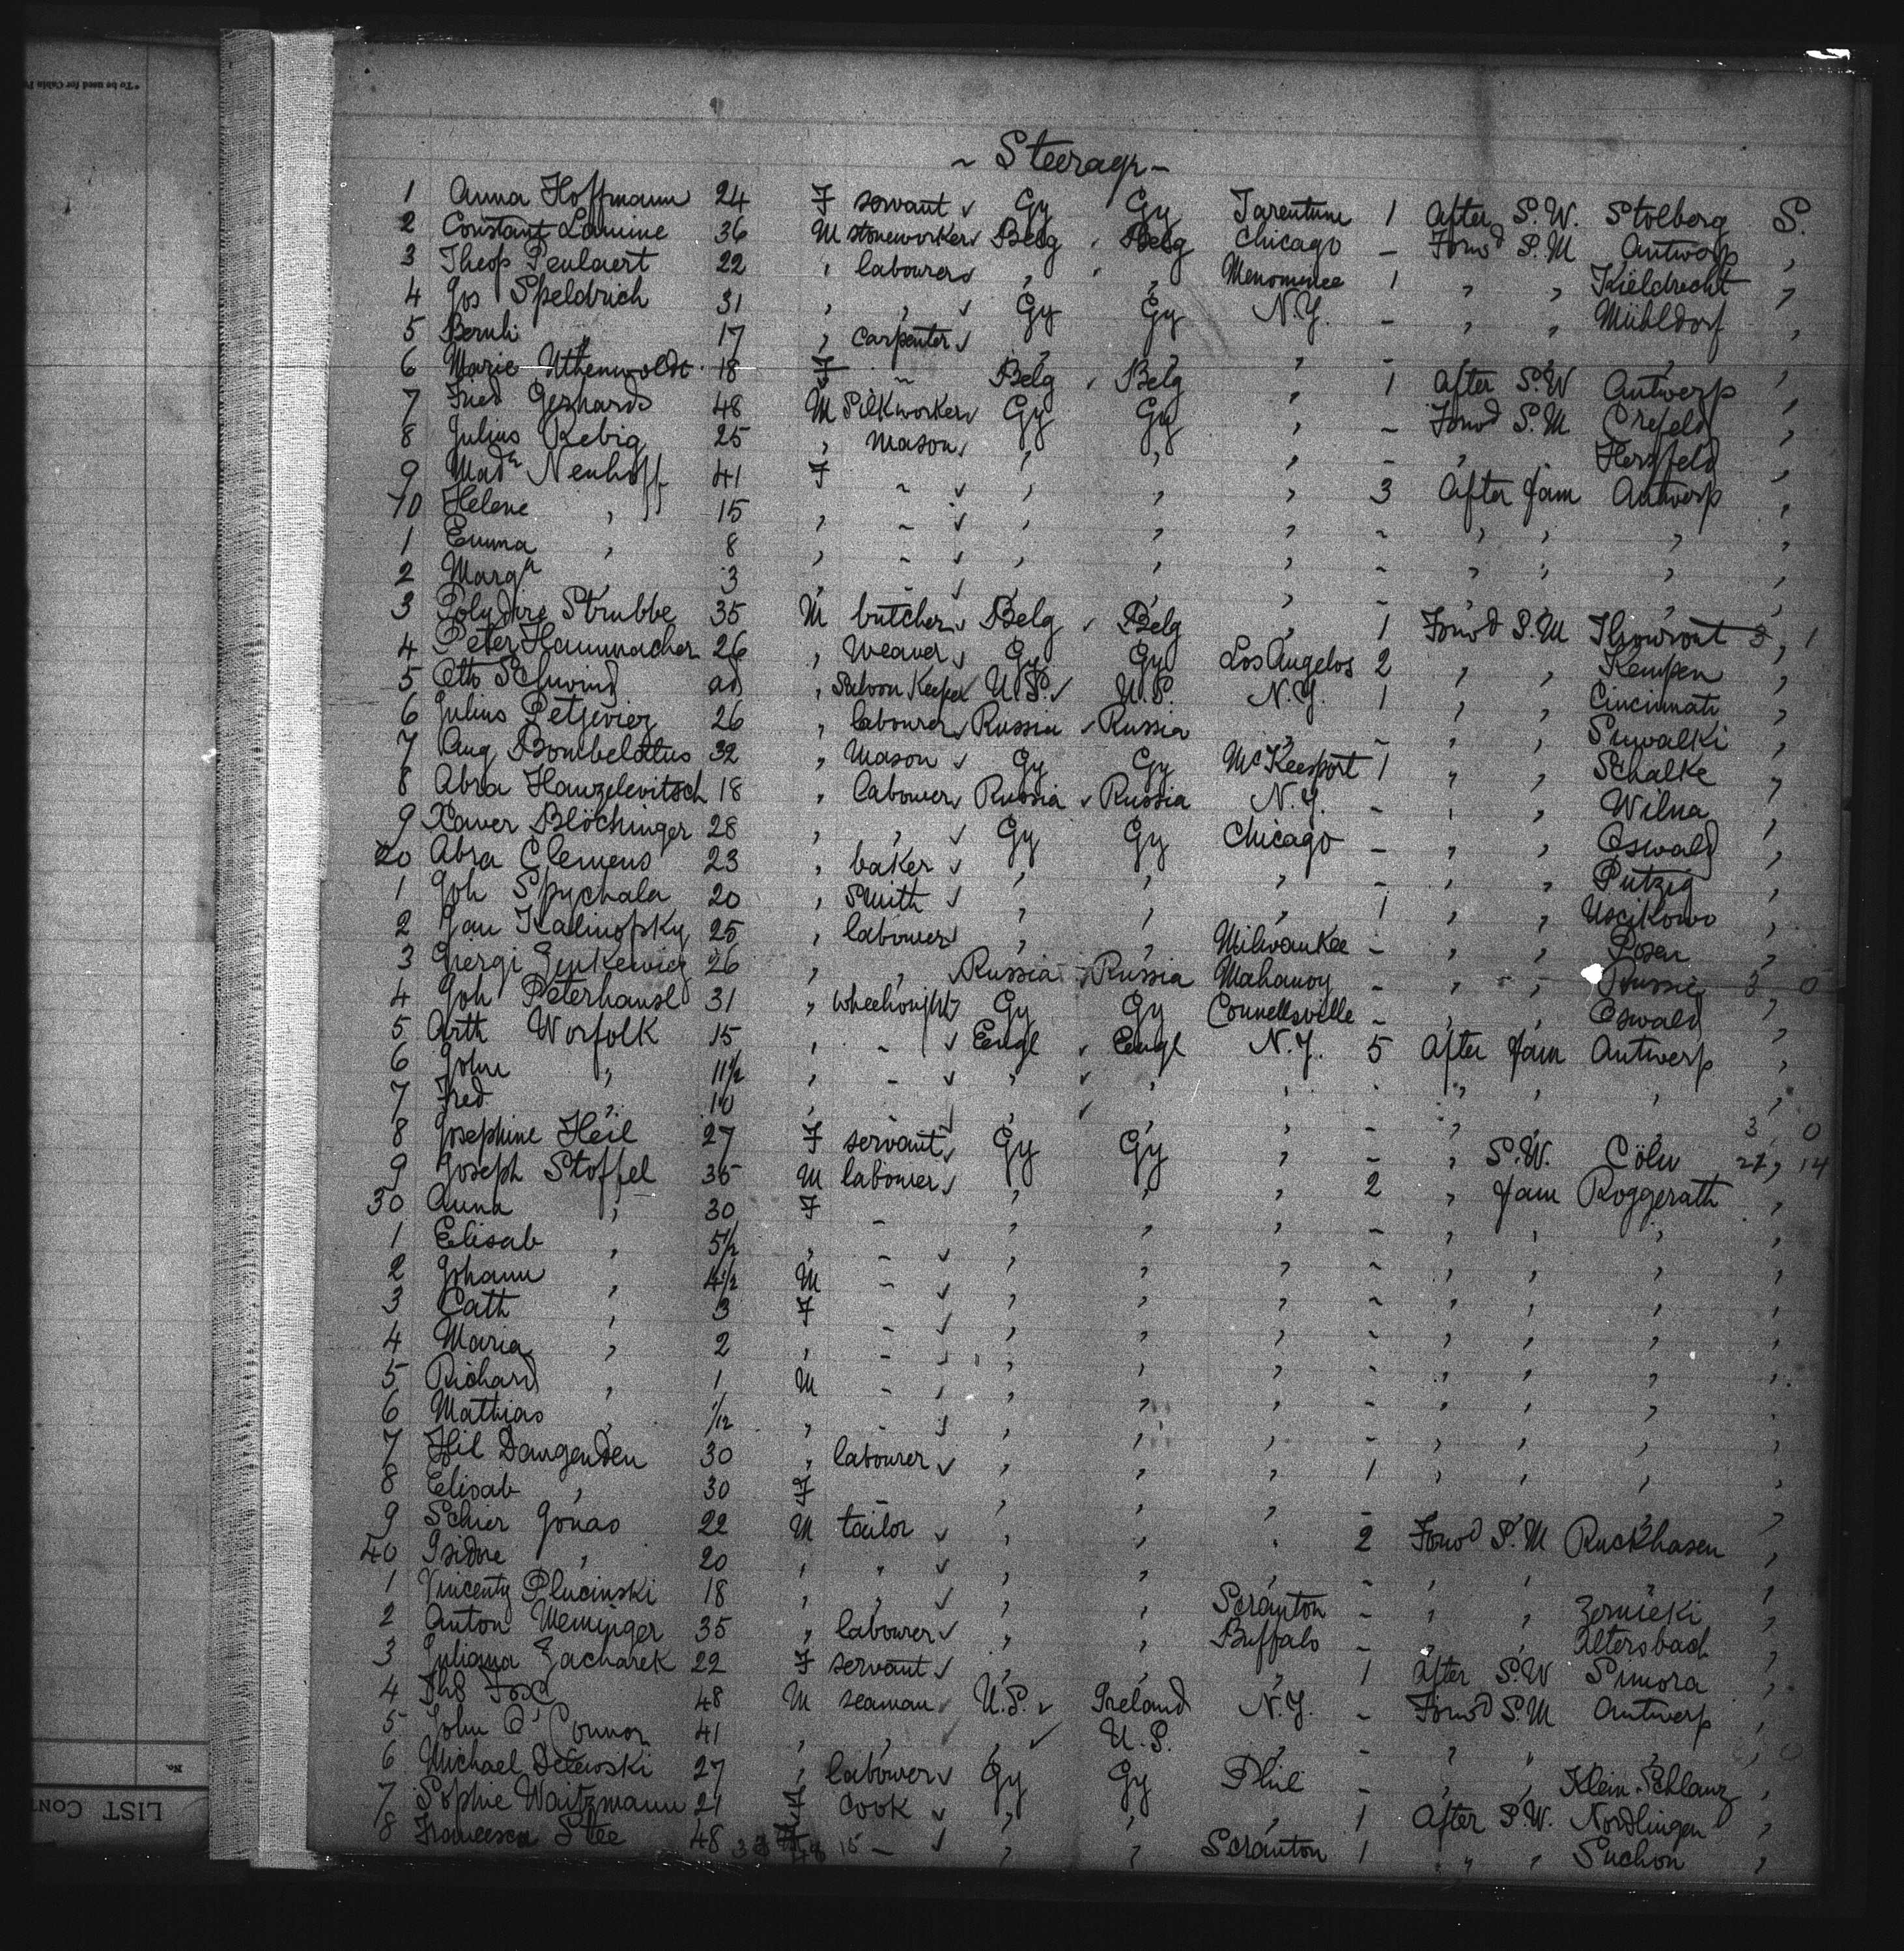 ~ Steerage ~
1 Anna Hoffmann 24 F servant ✓ Gy Gy Tarentum 1 After S.W. Stolberg S.
2 Constant Lamine 36 M stoneworker ✓ Belg ✓ Belg Chicago – Forwd S.M Antwerp "
3 Theop Peulaert 22 " labourer ✓ " " " Menominee 1 " " Kieldrecht "
4 Jos Speldrich 31 " " ✓ Gy Gy N.Y. – " " Mühldorf "
5 Bernh " 17 " carpenter ✓ " " " – " " " "
6 Marie Uthenwoldt 18 F ~ Belg ✓ Belg " 1 After S.W Antwerp "
7 Fried Gerhards 48 M Silkworker ✓ Gy Gy " ~ Forwd S.M Crefeld "
8 Julius Rebig 25 " Mason ✓ " " " – " " Hersfeld "
9 Made Neuhoff 41 F ~ ✓ " " " 3 After fam Antwerp "
10 Helene " 15 " ~ ✓ " " " ~ " " " "
1 Emma " 8 " – ✓ " " " ~ " " " "
2 Marga " 3 " – ✓ " " " – " " " "
3 Polydire Strubbe 35 M butcher ✓ Belg ✓ Belg " 1 Forwd S.M Thourout 3, 1
4 Peter Hammacher 26 " Weaver ✓ Gy Gy Los Angelos 2 " " Kempen "
5 Otto Schwind ad " Saloon Keeper U.S. ✓ U.S. N.Y. 1 " " Cincinnati "
6 Julius Petjeviez 26 " labourer ✓ Russia ✓ Russia " – " " Suwalki "
7 Aug Bombelattus 32 " Mason ✓ Gy Gy McKeesport 1 " " Schalke "
8 Abra Hanzelevitsch 18 " labourer ✓ Russia ✓ Russia N.Y. – " " Wilna "
9 Xaver Blöchinger 28 " " ✓ Gy Gy Chicago – " " Eswald "
20 Abra Clemens 23 " baker ✓ " " " – " " Putzig "
1 Joh Spychala 20 " Smith ✓ " " " 1 " " Uscikowo "
2 Jan Kalinofsky 25 " labourer ✓ " " Milwaukee – " " Posen "
3 Giergi 26 " " ✓ Russia ✓ Russia Mahanoy – " " Russie 3, 0
4 Joh Peterhansl 31 " wheelwright ✓ Gy Gy Connellsville – " " Eswald "
5 Arth Worfolk 15 " – ✓ Engl ✓ Engl N.Y. 5 After fam Antwerp "
6 John " 11½ " – ✓ " ✓ " " - " " " "
7 Fred " 10 " – ✓ " ✓ " " – " " " 3, 0
8 Josephine Heil 27 F servant ✓ Gy Gy " – " S.W. Cöln 21, 14
9 Joseph Stoffel 35 M labourer ✓ " " " 2 " fam Roggerath "
30 Anna " 30 F – " " " – " " " "
1 Elisab " 5½ " – ✓ " " " ~ " " " "
2 Johann " 4½ M – ✓ " " " ~ " " " "
3 Cath " 3 F – ✓ " " " ~ " " " "
4 Maria " 2 " – ✓ " " " - " " " "
5 Richard " 1 M – ✓ " " " – " " " "
6 Mathias " 1/12 " – ✓ " " " – " " " "
7 Hil Daugenden 30 " labourer ✓ " " " 1 " " " "
8 Elisab " 30 F – " " " – " " " "
9 Schier Jonas 22 M tailor ✓ " " " 2 Forwd S.M Ruckhasen "
40 Isidore " 20 " " ✓ " " " – " " " "
1 Vincenty Plucinski 18 " " ✓ " " Scranton – " " Zernicki "
2 Anton Meminger 35 " labourer ✓ " " Buffalo – " " Altersbach "
3 Juliana Zacharek 22 F servant ✓ " " " 1 After S.W Simora "
4 Ths Fox 48 M seaman ✓ U.S. ✓ Ireland N.Y. – Forwd S.M Antwerp "
5 John O'Connor 41 " " ✓ " ✓ U.S. " – " " " 0
6 Michael Delewski 27 " labourer ✓ Gy Gy Phil – " " Klein Schlanz "
7 Sophie Waitzmann 21 F Cook ✓ " " " 1 After S.W. Nordlingen "
8 Francesca Stee 48 – ✓ " " Scranton 1 " " Suchon "
*To be used for Cabin P
No.
LIST CONT